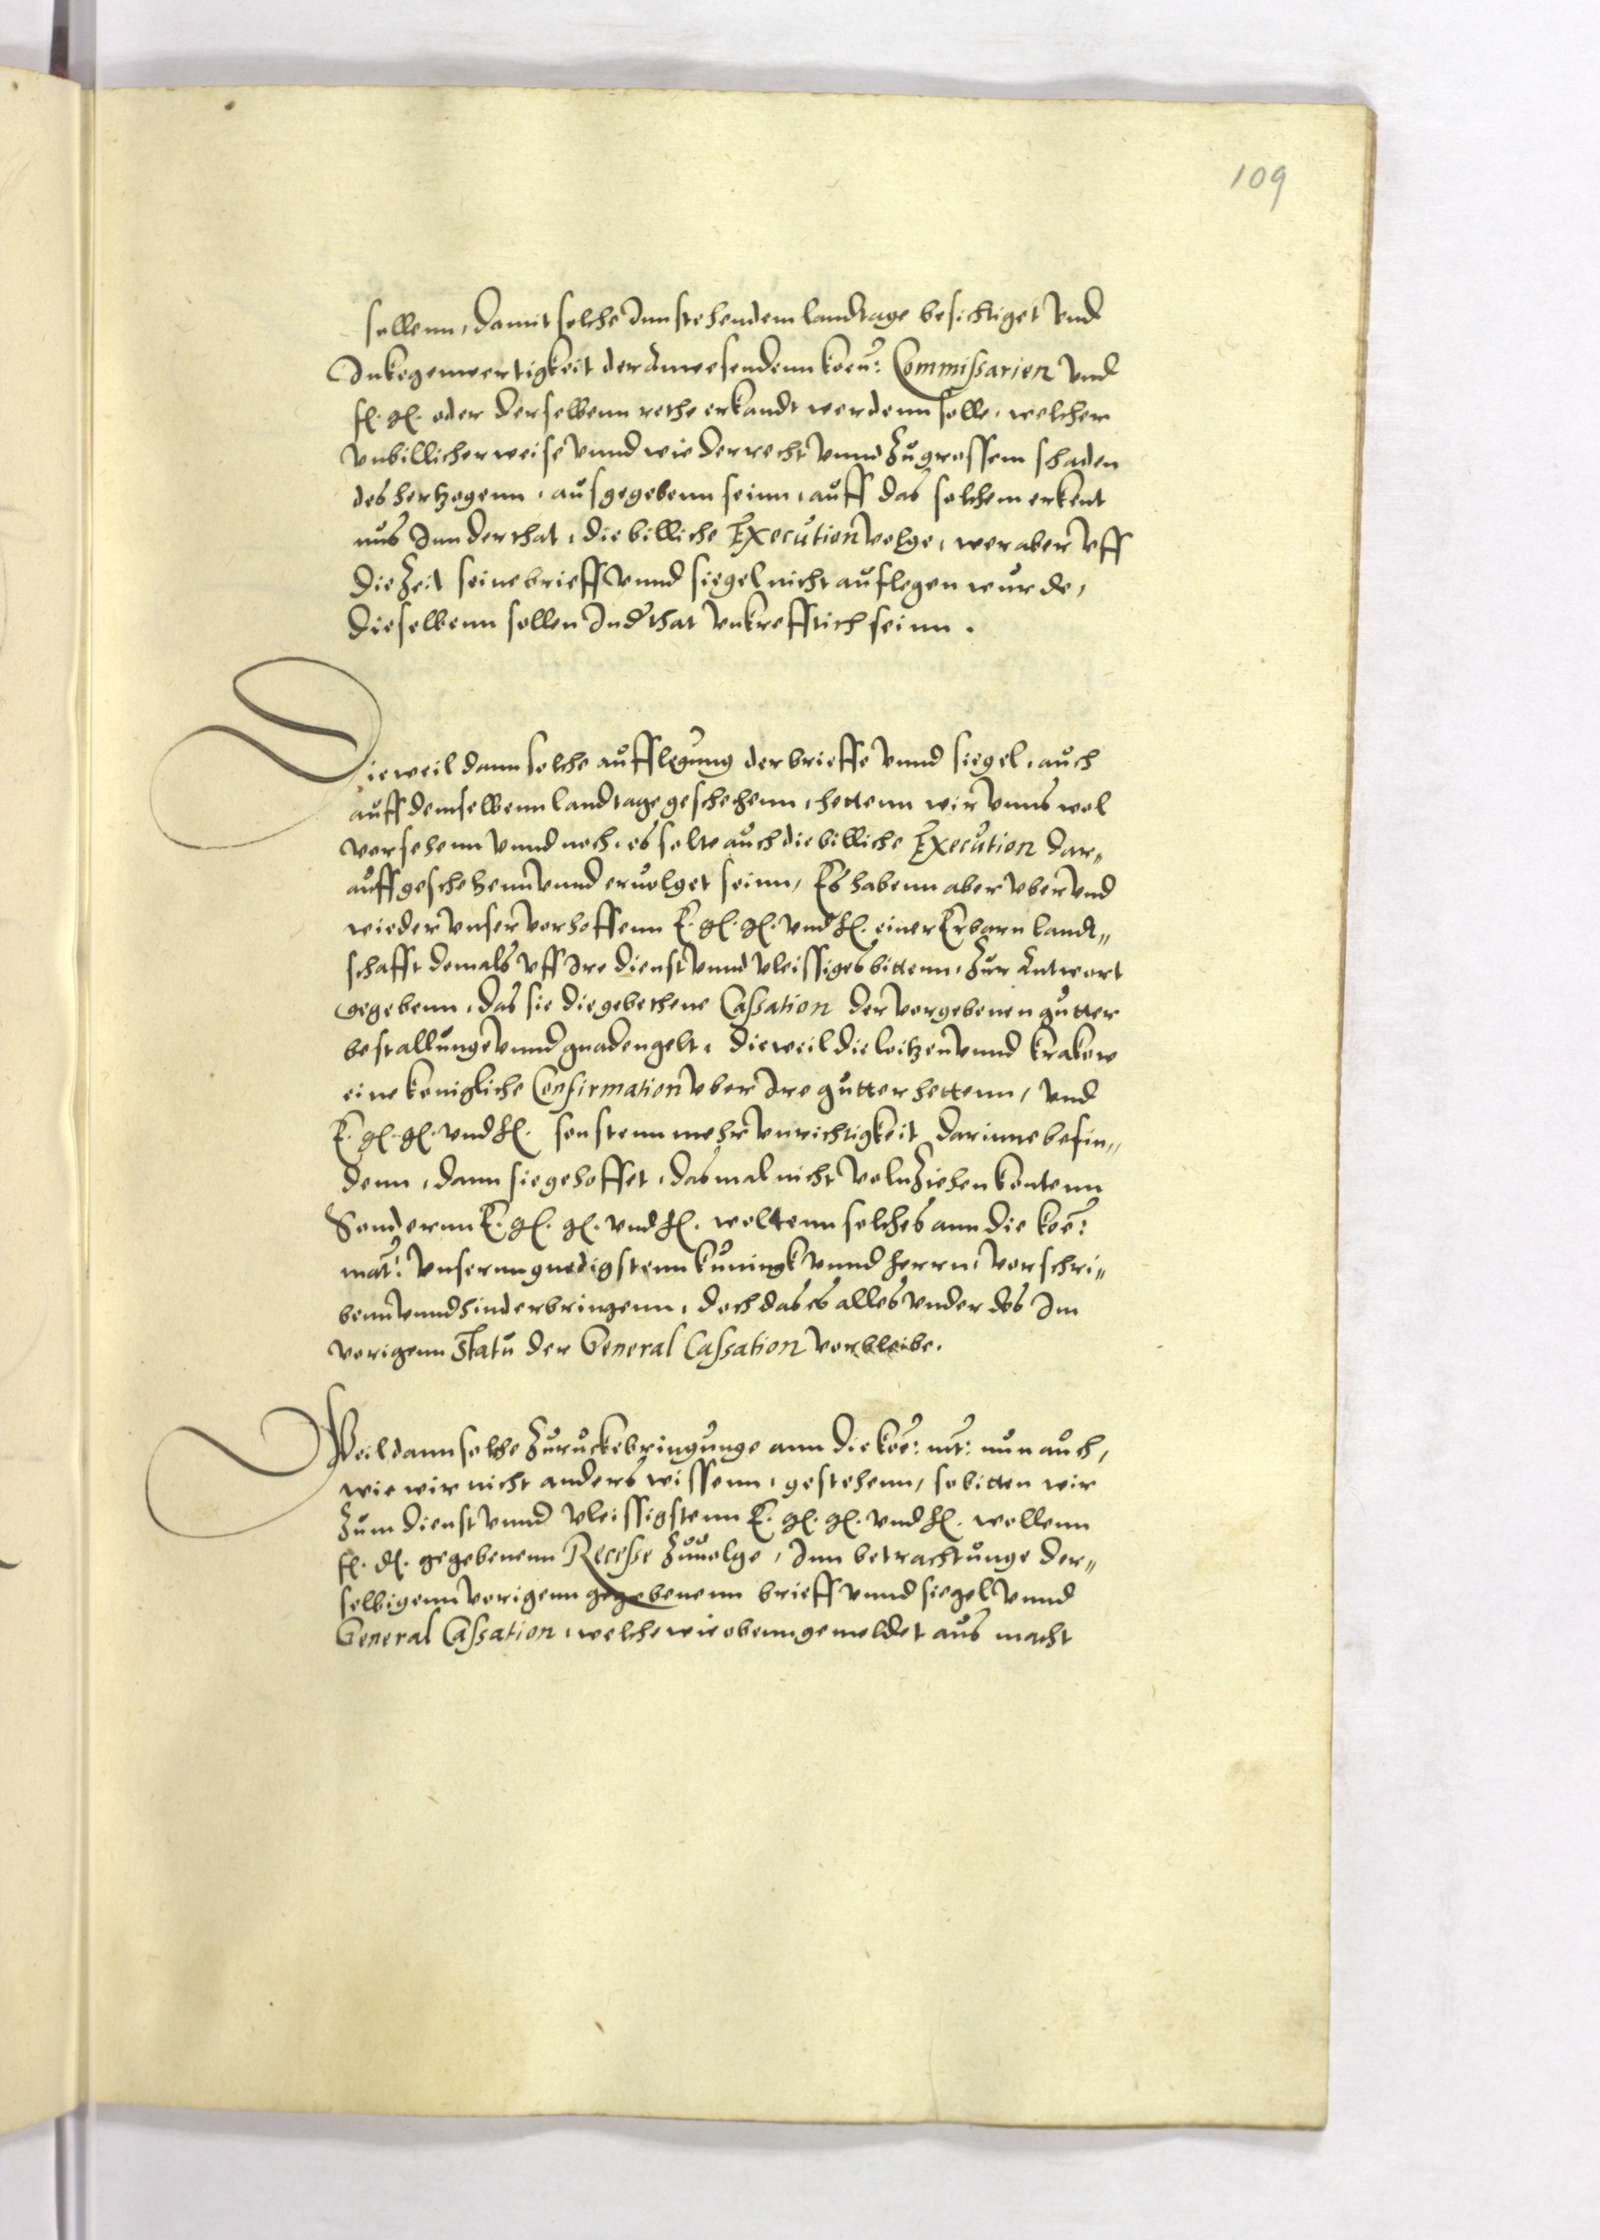 109
sollenn, damit solche Inn stehendem landtage besichtiget vnd
Inkegenwertigkeit der Anwesendenn koen: Commissarien vnd
f. g. oder derselbenn rethe erkandt werdenn solle, welcher
vnbillicher weise vnnd wieder recht vnnd zu grossem schaden
des hertzogenn, ausgegebenn seinn, auff das solchem erkent
nus Inn der that, die billiche Execution volge, wer aber vff
die zeit seine brieff vnnd siegel nicht auflegen wurde,
dieselbenn sollen In der that vnkrefftich seinn.
Dieweil dann solche aufflegung der brieffe vnnd siegel, auch
auff demselbenn landtage geschehenn, hettenn wir vnns wol
vorsehenn vnnd noch, es solte auch die billiche Execution dar„
auff geschehenn vnnd eruolget seinn, Es habenn aber vber vnd
wieder vnser verhoffenn E. g. g. vnd h. einer Erbarn landt„
schafft domals vff Ire dienst vnnd vleissiges bittenn, zur Antwort
gegebenn, das sie die gebethene Cassation der vorgebenen gutter
bestallunge vnnd gnadengelt, dieweil die loitzen vnnd krakow
eine konigliche Confirmation vber Ire gutter hettenn, vnd
E. g. g. vnd h. sonstenn mehr vnrichtigkeit darinne befin„
denn, dann sie gehoffet, dasmal nicht volnziehen kontenn
Sondernn E. g. g. vnd h. woltenn solches ann die koe:
mat: vnsernn gnedigstenn kuningk vnnd herrn, vorschri„
benn vnnd hinderbringenn, doch das es alles vnder des Im
vorigenn Statu der General Cassation vorbleibe.
Weil dann solche zuruckebringunge ann die koe: mt: nun auch,
wie wir nicht anders wissenn, gestehenn, so bitten wir
zum dienst vnnd vleissigstenn E. g. g. vnd h. wollenn
f. d. gegebenenn Recesse zuuolge, Inn betrachtunge der„
selbigenn vorigenn gegebenenn brieff vnnd siegel vnnd
General Cassation, welche wie obenn gemeldet aus macht